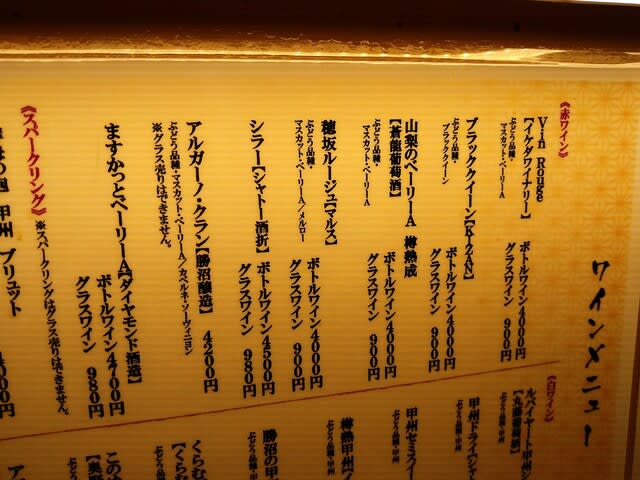 ワインメニュー
《赤ワイン》
Vin Rouge
【イケダワイナリー】
ぶどう品種・
マスカット・ベーリーA
ボトルワイン 4000円
グラスワイン 900円
ブラッククイーン【KIZAN】
ぶどう品種・
ブラッククイーン
ボトルワイン 4000円
グラスワイン 900円
山梨のベーリーA 樽熟成
【蒼龍葡萄酒】
ぶどう品種・
マスカット・ベーリーA
ボトルワイン 4000円
グラスワイン 900円
穂坂ルージュ【マルス】
ぶどう品種・
マスカット・ベーリーA/メルロー
ボトルワイン 4000円
グラスワイン 900円
シラー【シャトー酒折】
ボトルワイン 4500円
グラスワイン 980円
アルガーノ・クラン【勝沼醸造】 4200円
ぶどう品種・マスカット・ベーリーA/カベルネ・ソーヴィニヨン
※グラス売りはできません。
ますかっとベーリーA【ダイヤモンド酒造】
ボトルワイン 4700円
グラスワイン 980円
《スパークリング》 ※スパークリングはグラス売りはできません。
泡 甲州 ブリュット
000円
《白ワイン》
ルバイヤート甲州シ
【丸藤葡萄酒】
ぶどう品種・甲州
甲州ドライ【シャ
ぶどう品種・甲州
甲州セミスイー
ぶどう品種・甲州
樽熟甲州【イ
ぶどう品種・
勝沼の甲
ぶどう品種・
くらむ
【くらむ
ぶどう
この
ぶど
ア